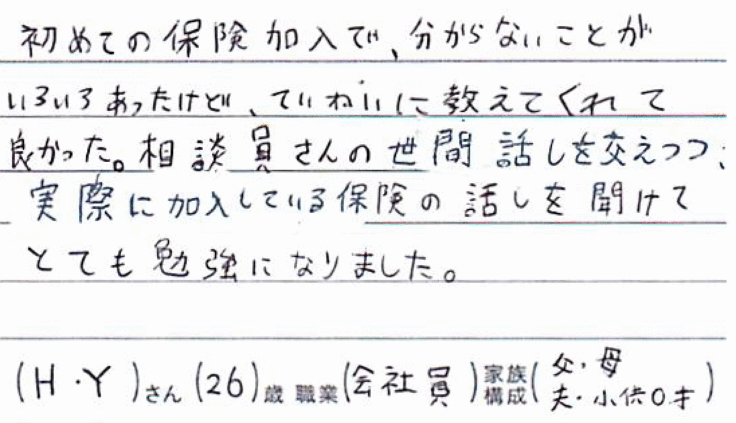 初めての保険加入で、分からないことが
いろいろあったけど、ていねいに教えてくれて
良かった。相談員さんの世間話しを交えつつ、
実際に加入している保険の話しを聞けて
とても勉強になりました。
(H・Y)さん(26)歳 職業(会社員)家族構成(父・母
夫・小供0才)